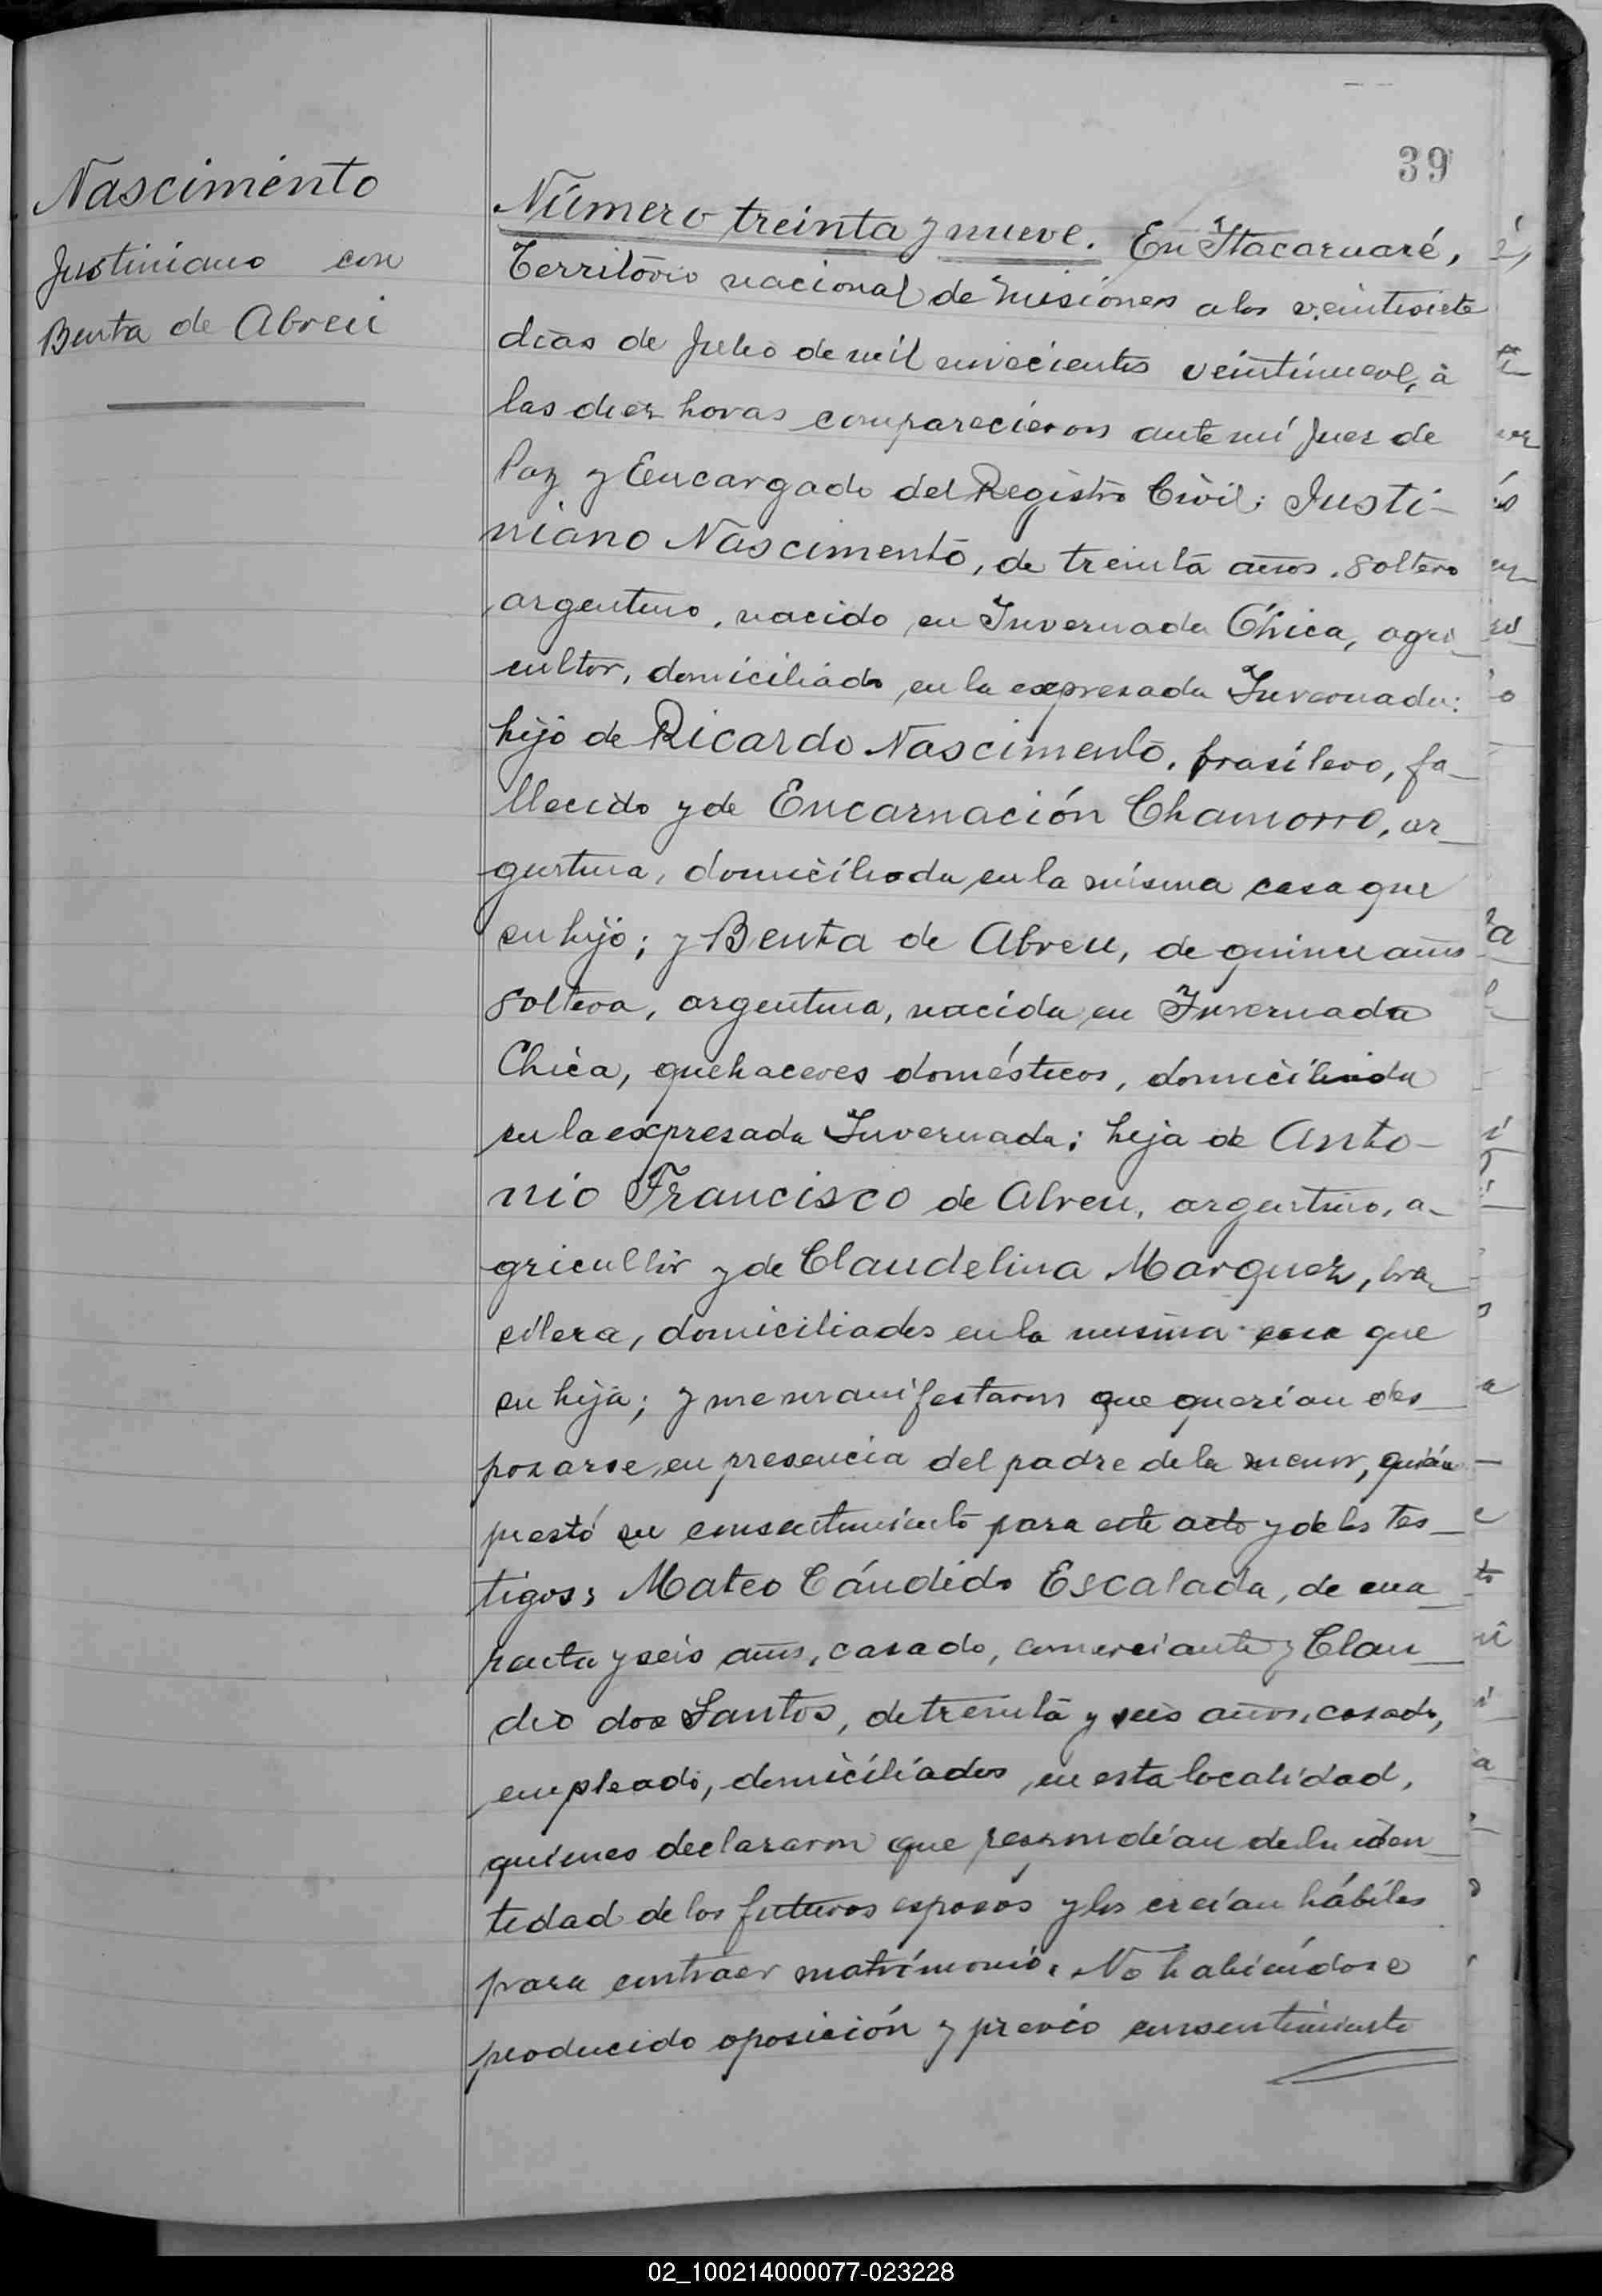 39
Nascimento
Justiniano con
Benta de Abreu
Número treinta y nueve. En Itacaruaré,
Território nacional de Misiones a los veintisiete
días de Julio de mil novecientos veintinueve, à
las diez horas comparecieron ante mí Juez de
Paz y Encargado del Registro Civil: Justi-
niano Nascimento, de treinta años, soltero
argentino, nacido en Invernada Chica, agri-
cultor, domiciliado en la expresada Invernada:
hijo de Ricardo Nascimento, brasilero, fa-
llecido y de Encarnación Chamorro, ar-
gentina, domiciliada en la misma casa que
su hijo; y Benta de Abreu, de quince años
soltera, argentina, nacida en Invernada
Chica, quehaceres domésticos, domiciliada
en la expresada Invernada; hija de Anto-
nio Francisco de Abreu, argentino, a-
gricultor y de Claudelina Marquez, bra-
silera, domiciliados en la misma casa que
su hija; y me manifestaron que querían des-
posarse, en presencia del padre de la menor, quién
prestó su consentimiento para este acto y de los tes-
tigos; Mateo Cándido Escalada, de cua-
renta y seis años, casado, comerciante y Clau-
dio dos Santos, de treinta y seis años, casado,
empleado, domiciliados en esta localidad,
quienes declararon que respondían de la iden-
tidad de los futuros esposos y los creían hábiles
para contraer matrimonio. No habiéndose
producido oposición y previo consentimiento
02_100214000077-023228